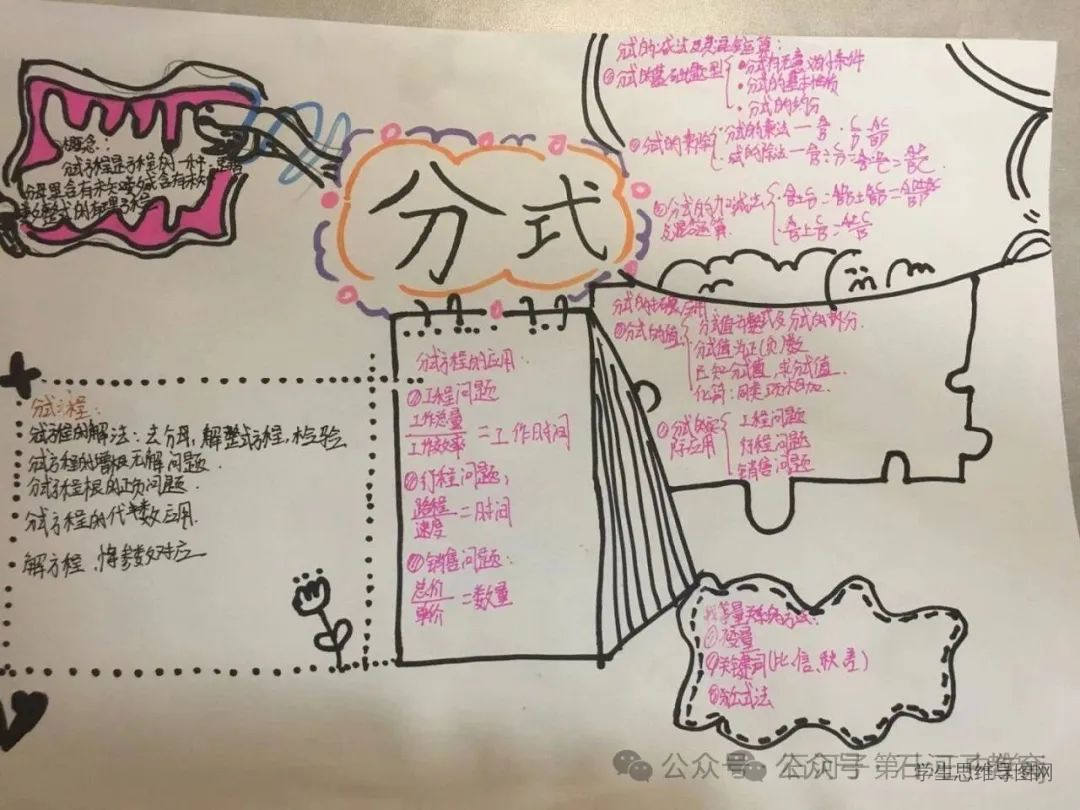 分式
概念：
分式方程是方程的一种，是指
分母里含有未知数或含有未知
数整式的有理方程
分式的减法及其混合运算：
①分式的基础题型
·分式有无意义的条件
·分式的基本性质
·分式的约分
②分式的乘除
·分式的乘法
·分式的除法
③分式的加减法
及混合运算
分式的拓展应用
①分式的值
分式值为整式及分式的部分
分式值为正(负)数
已知分式值，求分式值
化简：同类项相加
②分式的实
际应用
工程问题
行程问题
销售问题
分式方程的应用：
①工程问题
工作总量
工作效率
=工作时间
②行程问题：
路程
速度
=时间
③销售问题：
总价
单价
=数量
分式方程：
分式方程的解法：去分母，解整式方程，检验
分式方程的增根无解问题
分式方程根的正负问题
分式方程的代数应用
解方程、将参数对应
找等量关系的方法：
①变量
②关键词(比、倍、秋、差)
③公式法
公众号
公众号·第
学生思维导图网